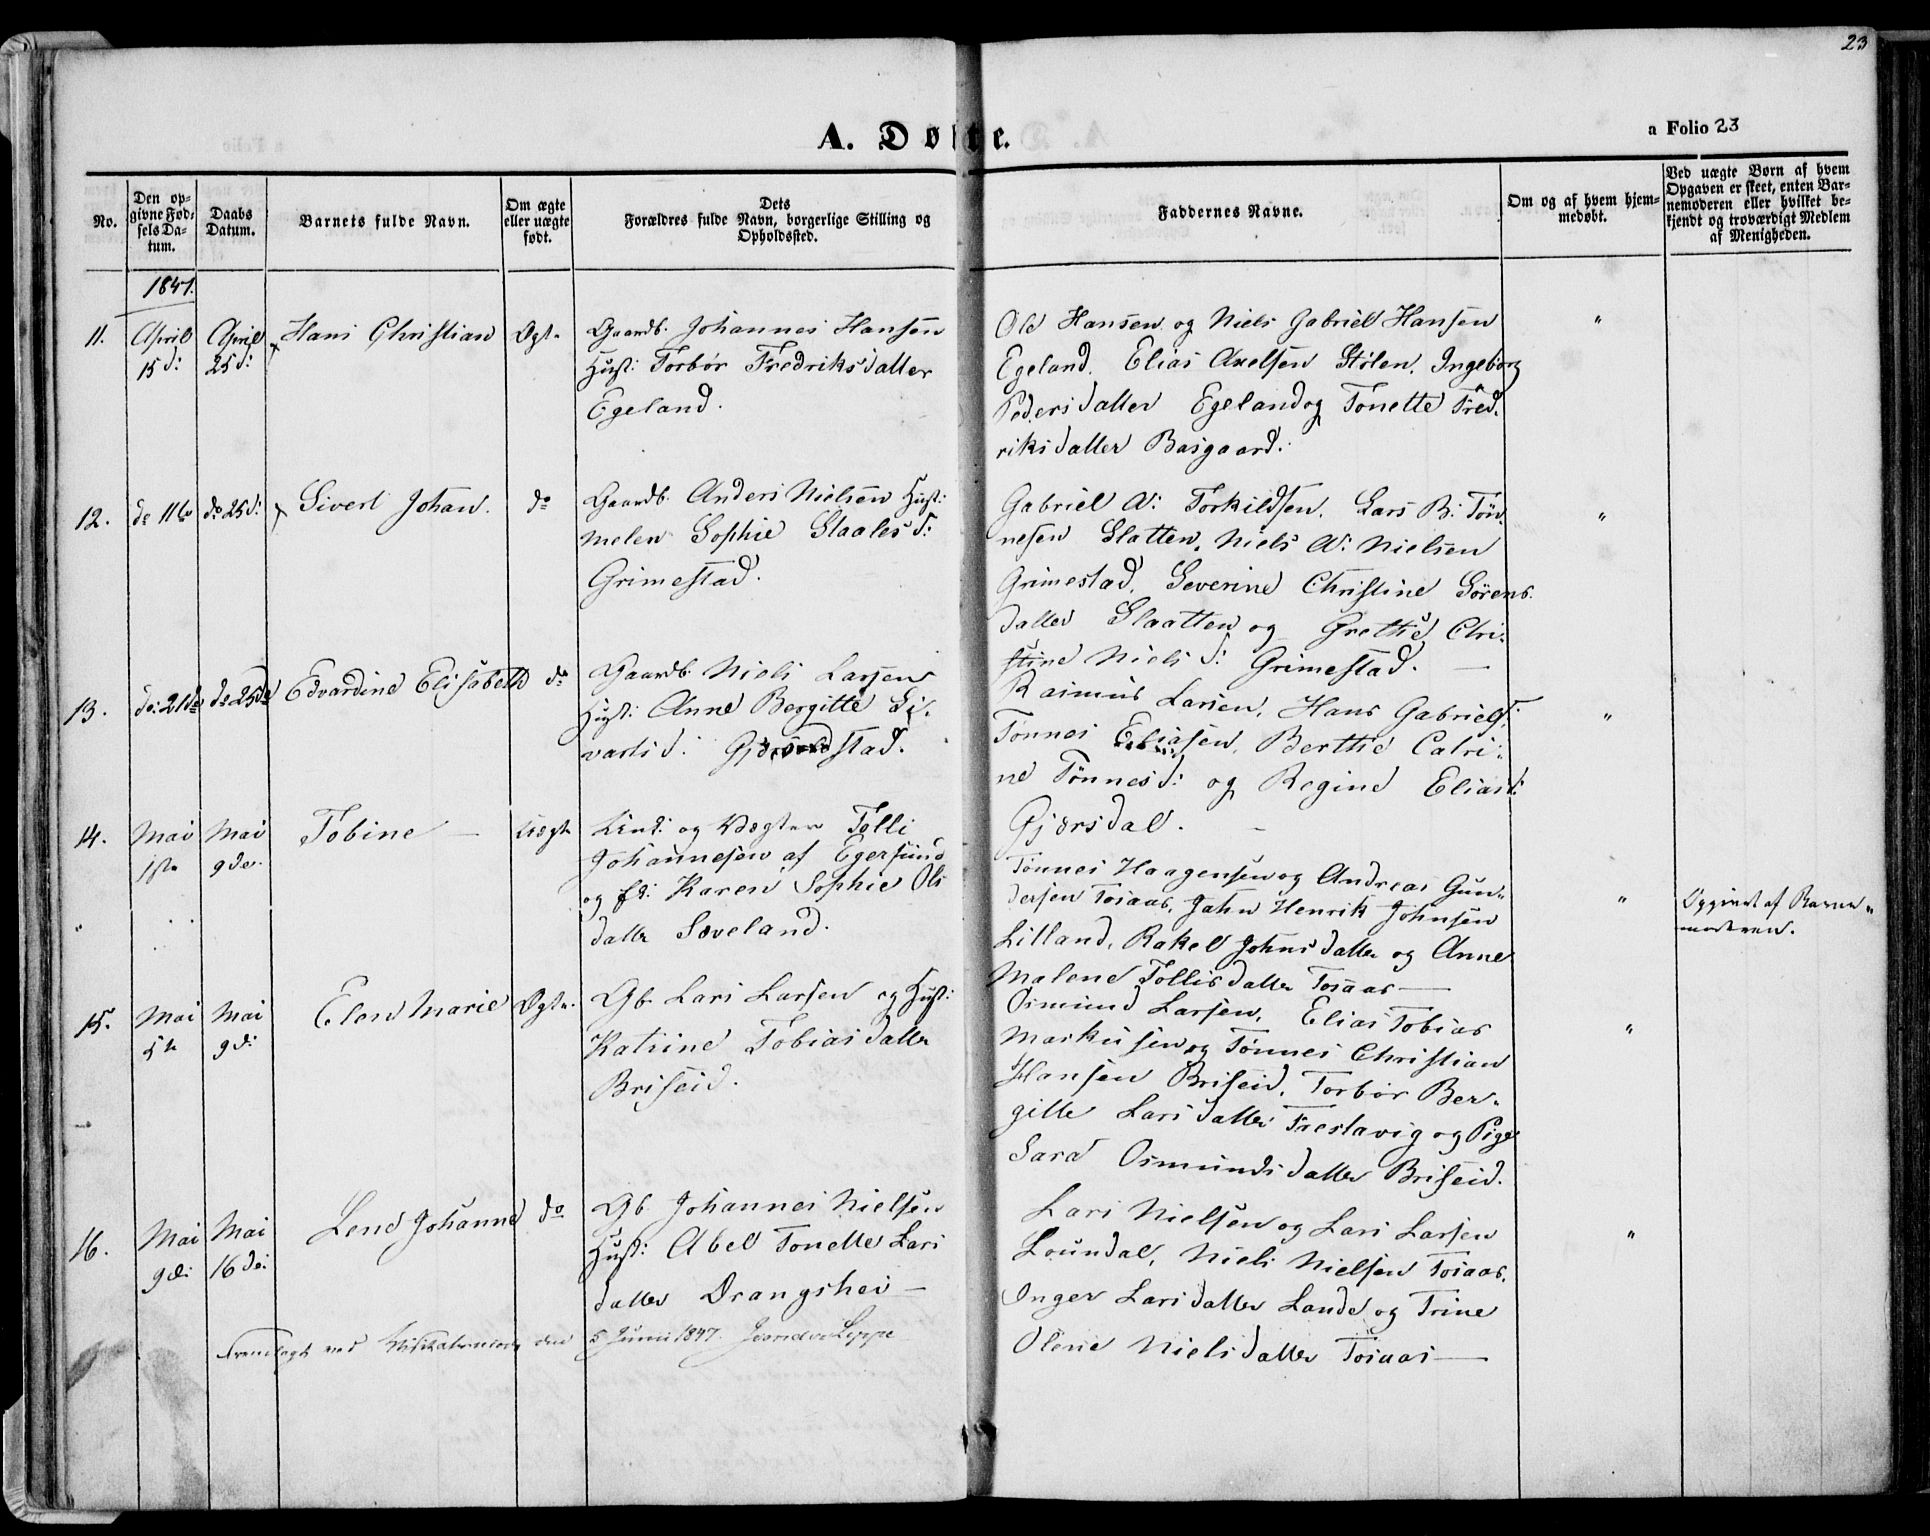 23
A. Døbte.
a Folio 23
No.
Den op-
givne Fød-
sels Da-
tum.
Daabs
Datum.
Barnets fulde Navn.
Om ægte
eller uægte
født.
Dets
Forældres fulde Navn, borgerlige Stilling og
Opholdssted.
Faddernes Navne.
Om og af hvem hjem-
medøbt.
Ved uægte Børn af hvem
Opgaven er skeet, enten Bar-
nemoderen eller hvilket be-
kjendt og troværdigt Medlem
af Menigheden.
1847.
11.
April
15 d:
April
25 d:
Hans Christian
Ægte
Gaardb. Johannes Hansen
Hust: Torbør Fredriksdatter
Egeland.
Ole Hansen og Niels Gabriel Hansen
Egeland. Elias Axelsen Stølen, Ingeborg
Pedersdatter Egeland og Tonette Fred-
riksdatter Basgaard.
"
12.
do 11te
do 25 d:
Sivert Johan.
do
Gaardb. Anders Nielsen Hust:
Melen Sophie Slaales d:
Grimestad.
Gabriel A: Torkildsen. Lars B: Tøn-
nesen Slatten, Niels A: Nielsen
Grimestad, Severine Christine Sørens-
datter Slaatten og Grethe Chri-
stine Niels d: Grimestad. —
"
13.
do: 21de
do 25de
Edvardine Elisabeth
do
Gaardb. Niels Larsen
Hust: Anne Bergitte Si-
varts d.
Rasmus Larsen, Hans Gabriels:
Tønnes Eliasen, Berthe Catri-
ne Tønnes d: og Regine Elias d:
Gjersdal. —
"
14.
Mai
1ste
Mai
9de.
Tobine —
Uægte
Unk: og Vægter Tolli
Johannesen af Egersund
og fr: Karen Sophie Ols
datter Sæveland.
Tønnes Haagensen og Andreas Gun-
dersen Tosaas, Jahn Henrik Johnsen
Lilland, Rakel Johnsdatter og Anne
Malene Tollisdatter Tosaas —
"
Opgivet af Barne-
moderen.
15.
Mai
5te
Mai
9 d:
Elen Marie
Ægte.
Gb. Lars Larsen og Hust:
Katrine Tobiasdatter
Briseid.
Osmund Larsen, Elias Tobias
Markusen og Tønnes Christian
Hansen Briseid, Torbør Ber-
gitte Larsdatter Træslavig og Pige
Sara Osmundsdatter Briseid.
"
16.
Mai
9 d:
Mai
16 de:
Lene Johanne
do
Gb. Johannes Nielsen
Hust: Abel Tonette Lars
datter Drangshei —
Lars Nielsen og Lars Larsen
Loundal, Niels Nielsen Tosaas.
Inger Larsdatter Lande og Trine
Olene Nielsdatter Tosaas —
"
Fremlagt ved Visitatsmøde den 5 Juni 1847.